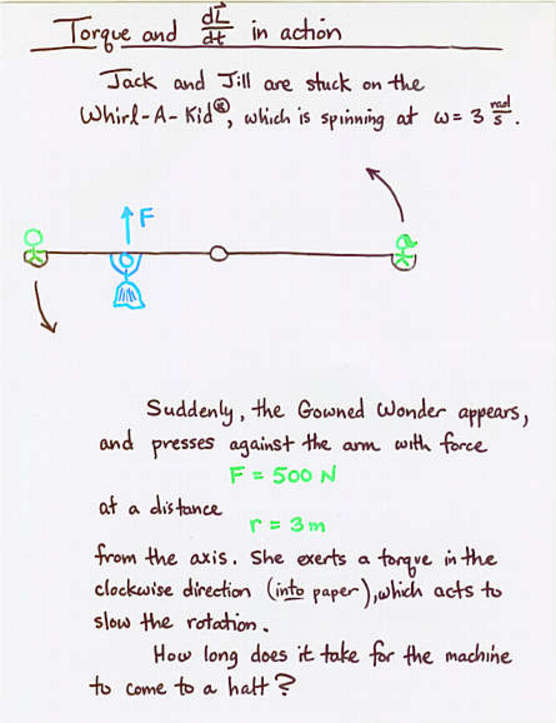 Torque and dL⃗/dt in action
Jack and Jill are stuck on the
Whirl-A-Kid®, which is spinning at ω = 3 rad/s.
F
Suddenly, the Gowned Wonder appears,
and presses against the arm with force
F = 500 N
at a distance
r = 3 m
from the axis. She exerts a torque in the
clockwise direction (into paper), which acts to
slow the rotation.
How long does it take for the machine
to come to a halt?